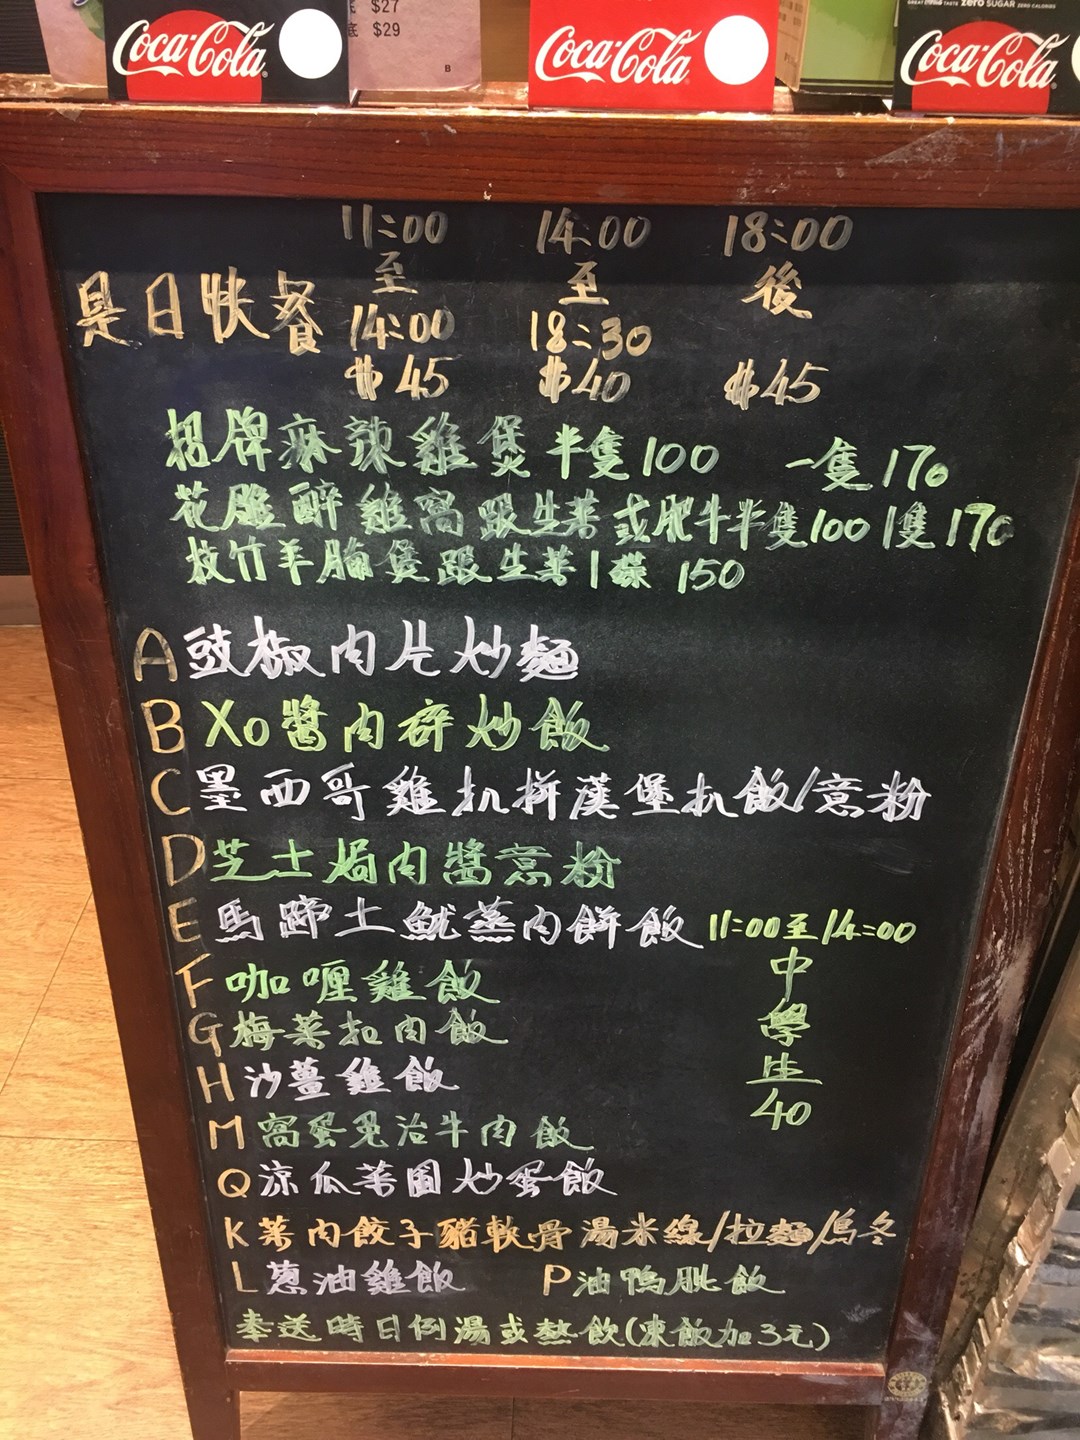 $27
底 $29
B
Coca-Cola
Coca-Cola
GREAT COKE TASTE zero SUGAR ZERO CALORIES
Coca-Cola
是日快餐
11:00 至 14:00 $45
14:00 至 18:30 $40
18:00 後 $45
招牌麻辣雞煲半隻100 一隻170
花雕醉雞窩跟生菜或肥牛半隻100 1隻170
枝竹羊腩煲跟生菜1碟 150
A 豉椒肉片炒麵
B XO醬肉碎炒飯
C 墨西哥雞扒拼漢堡扒飯/意粉
D 芝士焗肉醬意粉
E 馬蹄土魷蒸肉餅飯
F 咖喱雞飯
G 梅菜扣肉飯
H 沙薑雞飯
M 窩蛋免治牛肉飯
Q 涼瓜菜圃炒蛋飯
K 菜肉餃子豬軟骨湯米線/拉麵/烏冬
L 蔥油雞飯 P 油鴨肶飯
11:00至14:00
中
學
生
40
奉送時日例湯或熱飲(凍飯加3元)